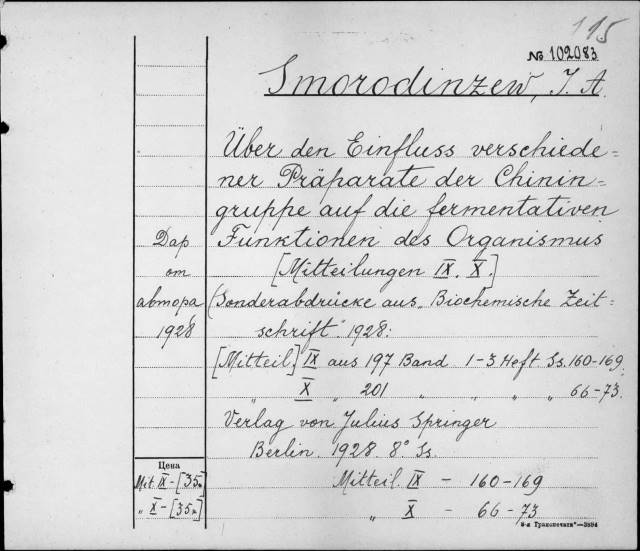 115
№ 102083
Smorodinzew, I. A.
Über den Einfluss verschiede=
ner Präparate der Chinin=
gruppe auf die fermentativen
Funktionen des Organismus
[Mitteilungen IX. X.]
(Sonderabdrücke aus „Biochemische Zeit=
schrift" 1928:
[Mitteil.] IX aus 197 Band 1-3 Heft Ss. 160-169.
„ X „ 201 „ „ „ „ 66-73.
Verlag von Julius Springer
Berlin. 1928. 8° Ss.
Mitteil. IX - 160-169
„ X - 66-73
Дар
от
автора
1928
Цена
Mit. IX-[35к]
„ X-[35к]
3-я Транспечать"—3894